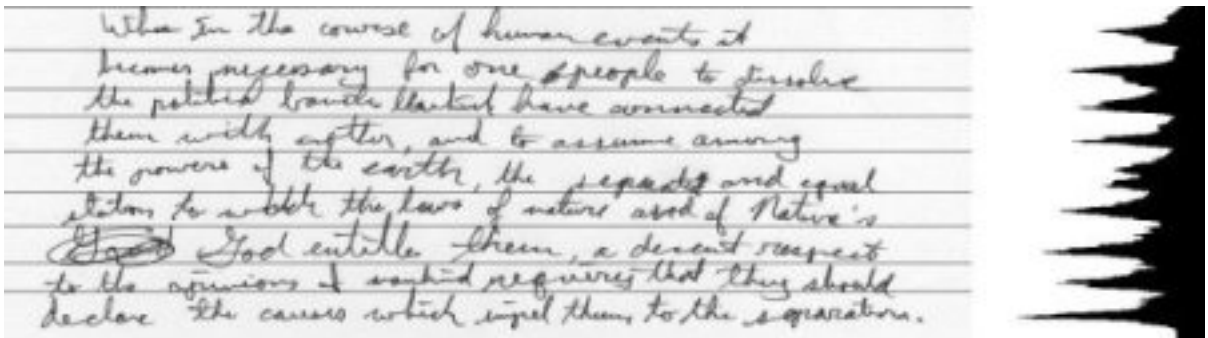 When In the course of human events it
becomes necessary for one people to dissolve
the political bands have connected
them with another, and to assume among
the powers of the earth, the separate and equal
station to which the laws of nature and of Nature's
God entitle them, a decent respect
to the opinions of mankind requires that they should
declare the causes which impel them to the separation.